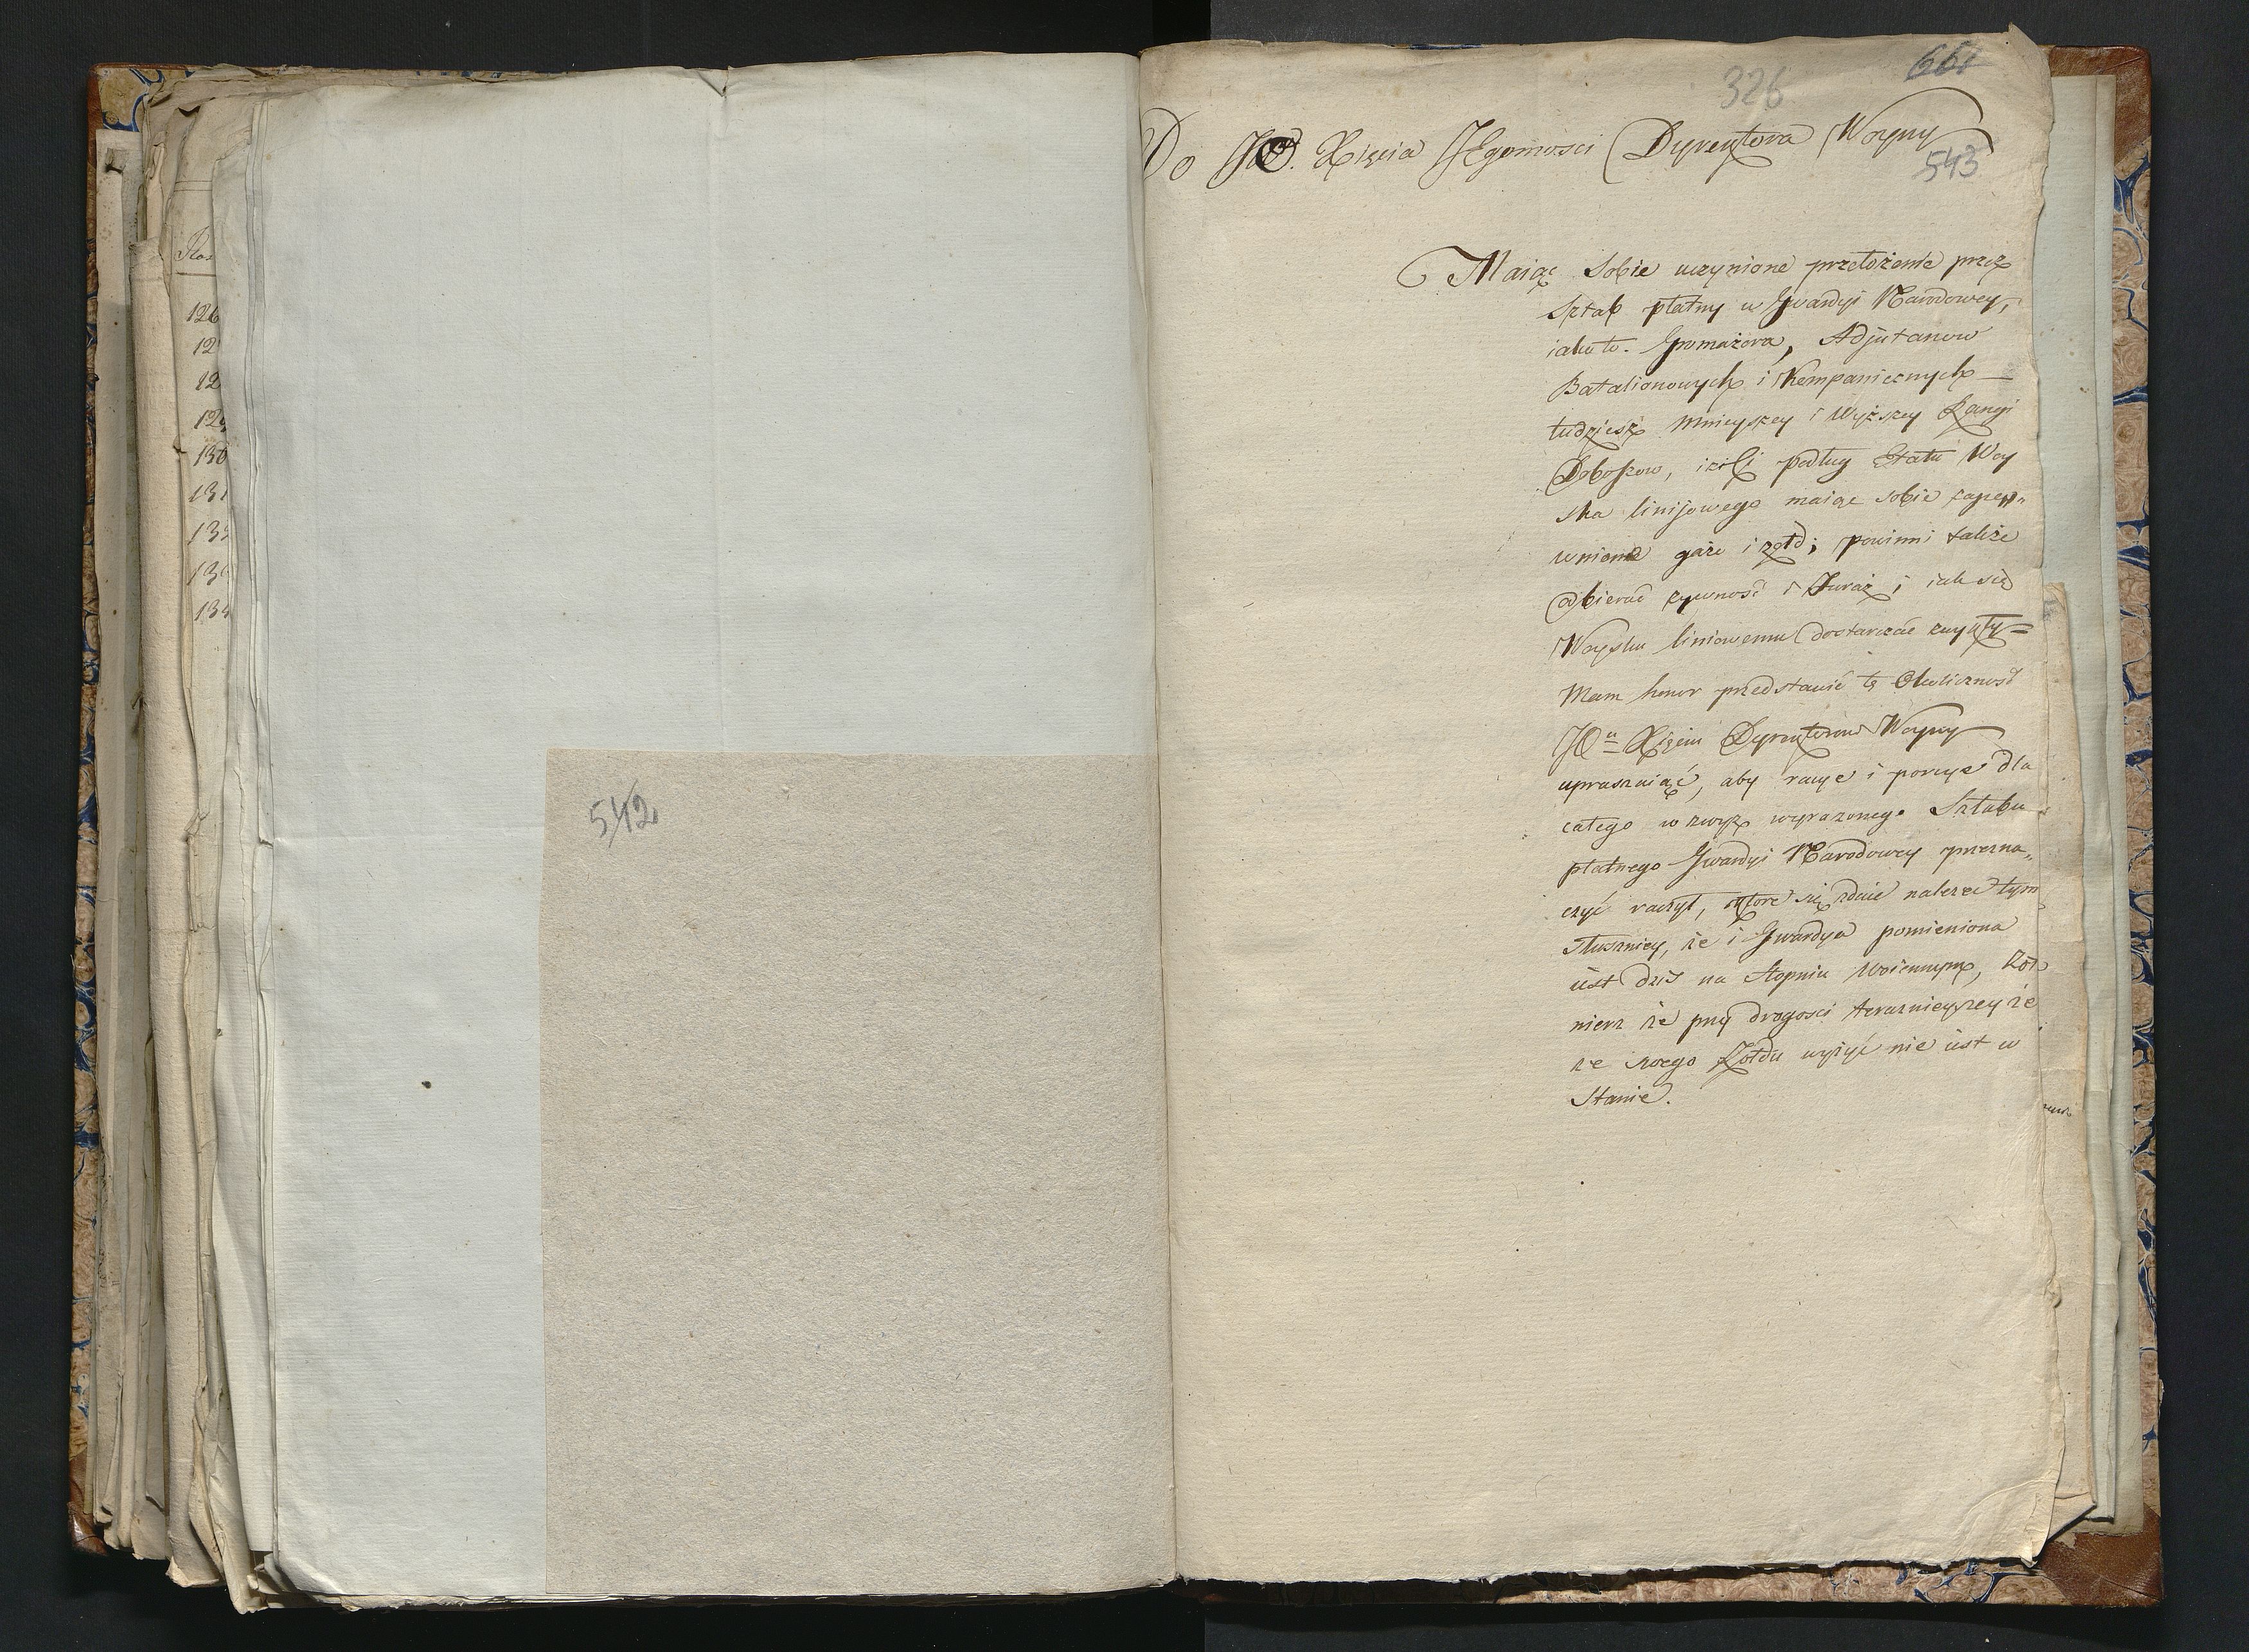 Ran
126
12
12
129
130
131
133
13
134
542
326
661
Do JO. Xięcia JEgomosci Dyrektora Woyny
543
Maiąc Sobie uczynione przełożenie przez
Sztab płatny w Gwardyi Narodowey,
iako to. Gromażora, Adjutanow
Batalionowych i Kompanicznych —
tudziesz mnieyszey i Wyższey Rangi
Doboszow, iżeli podług Etatu Woy
ska linijowego maiąc sobie zapew„
wnione gaże i żołd; powinni także
odbierać żywność i Furaż; iak się
Woysku liniowemu dostarczać zwykły=
Mam honor przedstawić tę Okoliczność
JOu Xięciu Dyrektorowi Woyny
upraszaiąć, aby racye i porcye dla
całego w zwyż wyrazonego Sztabu
płatnego Gwardyi Narodowey przezna„
czyć raczył, które się zdaie należeć tym
słuszniey, że i Gwardya pomieniona
iest dziś na Stopniu Woiennym, Żoł
nierz że przy drogosci terazniejszey że
ze swego Żołdu wyżyć nie iest w
Stanie.